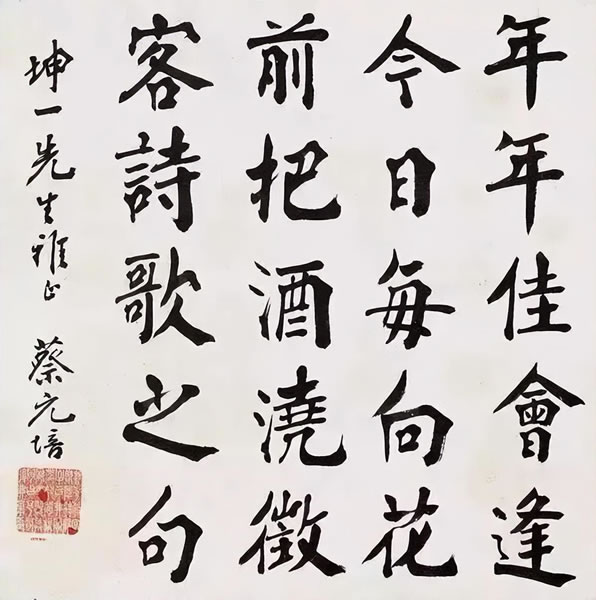 年年佳會逢
今日每向花
前把酒澆
客詩歌之句
坤一先生雅正 蔡元培